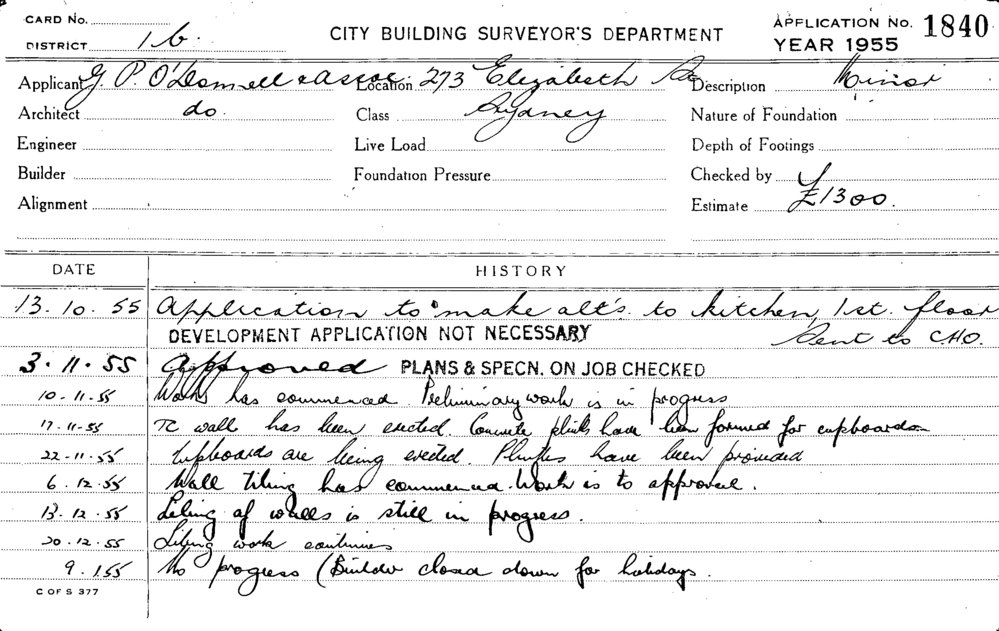 CARD No.
DISTRICT 1 b.
CITY BUILDING SURVEYOR'S DEPARTMENT
APPLICATION No. 1840
YEAR 1955
Applicant G. P. O'Donnell & Assoc. Location 273 Elizabeth Description Minor
Architect do. Class Sydney Nature of Foundation
Engineer Live Load Depth of Footings
Builder Foundation Pressure Checked by
Alignment Estimate £1300.
DATE HISTORY
13.10.55 Application to make alt's to kitchen, 1st. floor
DEVELOPMENT APPLICATION NOT NECESSARY Sent to CHO.
3.11.55 Approved PLANS & SPECN. ON JOB CHECKED
10-11-55 Work has commenced Preliminary work is in progress
17-11-55 TC wall has been erected. Concrete plinths have been formed for cupboards
22-11-55 Cupboards are being erected. have been provided
6.12.55 Wall tiling has commenced. Work is to approval.
13.12.55 Tiling of walls is still in progress.
20.12.55 Tiling work continues
9.1.55 No progress (Builder closed down for holidays.
C OF S 377